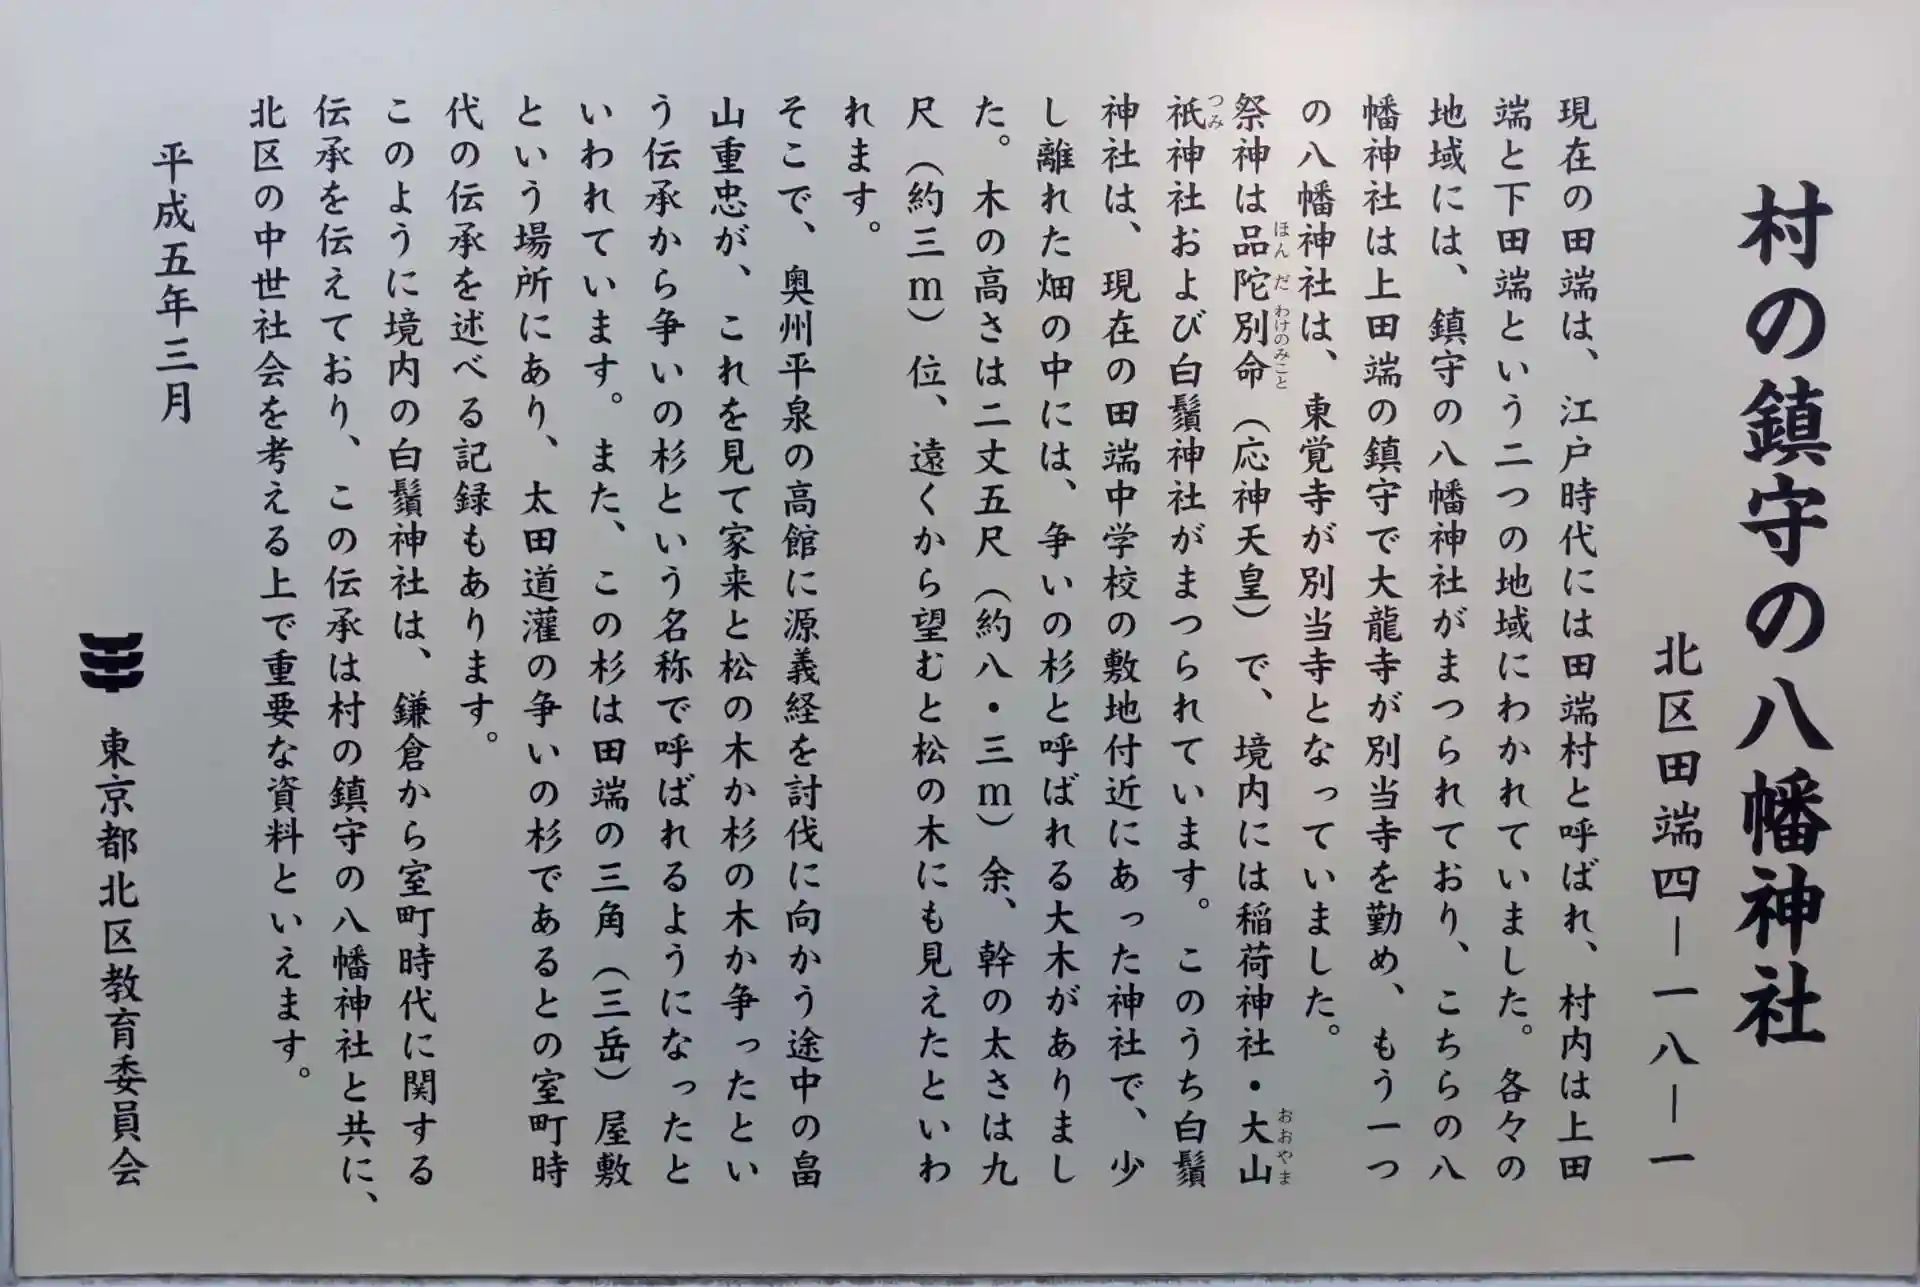 村の鎮守の八幡神社
北区田端四―一八―一
現在の田端は、江戸時代には田端村と呼ばれ、村内は上田
端と下田端という二つの地域にわかれていました。各々の
地域には、鎮守の八幡神社がまつられており、こちらの八
幡神社は上田端の鎮守で大龍寺が別当寺を勤め、もう一つ
の八幡神社は、東覚寺が別当寺となっていました。
祭神は品陀別命（応神天皇）で、境内には稲荷神社・大山
ほんだわけのみこと
おおやま
祇神社および白鬚神社がまつられています。このうち白鬚
つみ
神社は、現在の田端中学校の敷地付近にあった神社で、少
し離れた畑の中には、争いの杉と呼ばれる大木がありまし
た。木の高さは二丈五尺（約八・三ｍ）余、幹の太さは九
尺（約三ｍ）位、遠くから望むと松の木にも見えたといわ
れます。
そこで、奥州平泉の高館に源義経を討伐に向かう途中の畠
山重忠が、これを見て家来と松の木か杉の木か争ったとい
う伝承から争いの杉という名称で呼ばれるようになったと
いわれています。また、この杉は田端の三角（三岳）屋敷
という場所にあり、太田道灌の争いの杉であるとの室町時
代の伝承を述べる記録もあります。
このように境内の白鬚神社は、鎌倉から室町時代に関する
伝承を伝えており、この伝承は村の鎮守の八幡神社と共に、
北区の中世社会を考える上で重要な資料といえます。
平成五年三月
東京都北区教育委員会